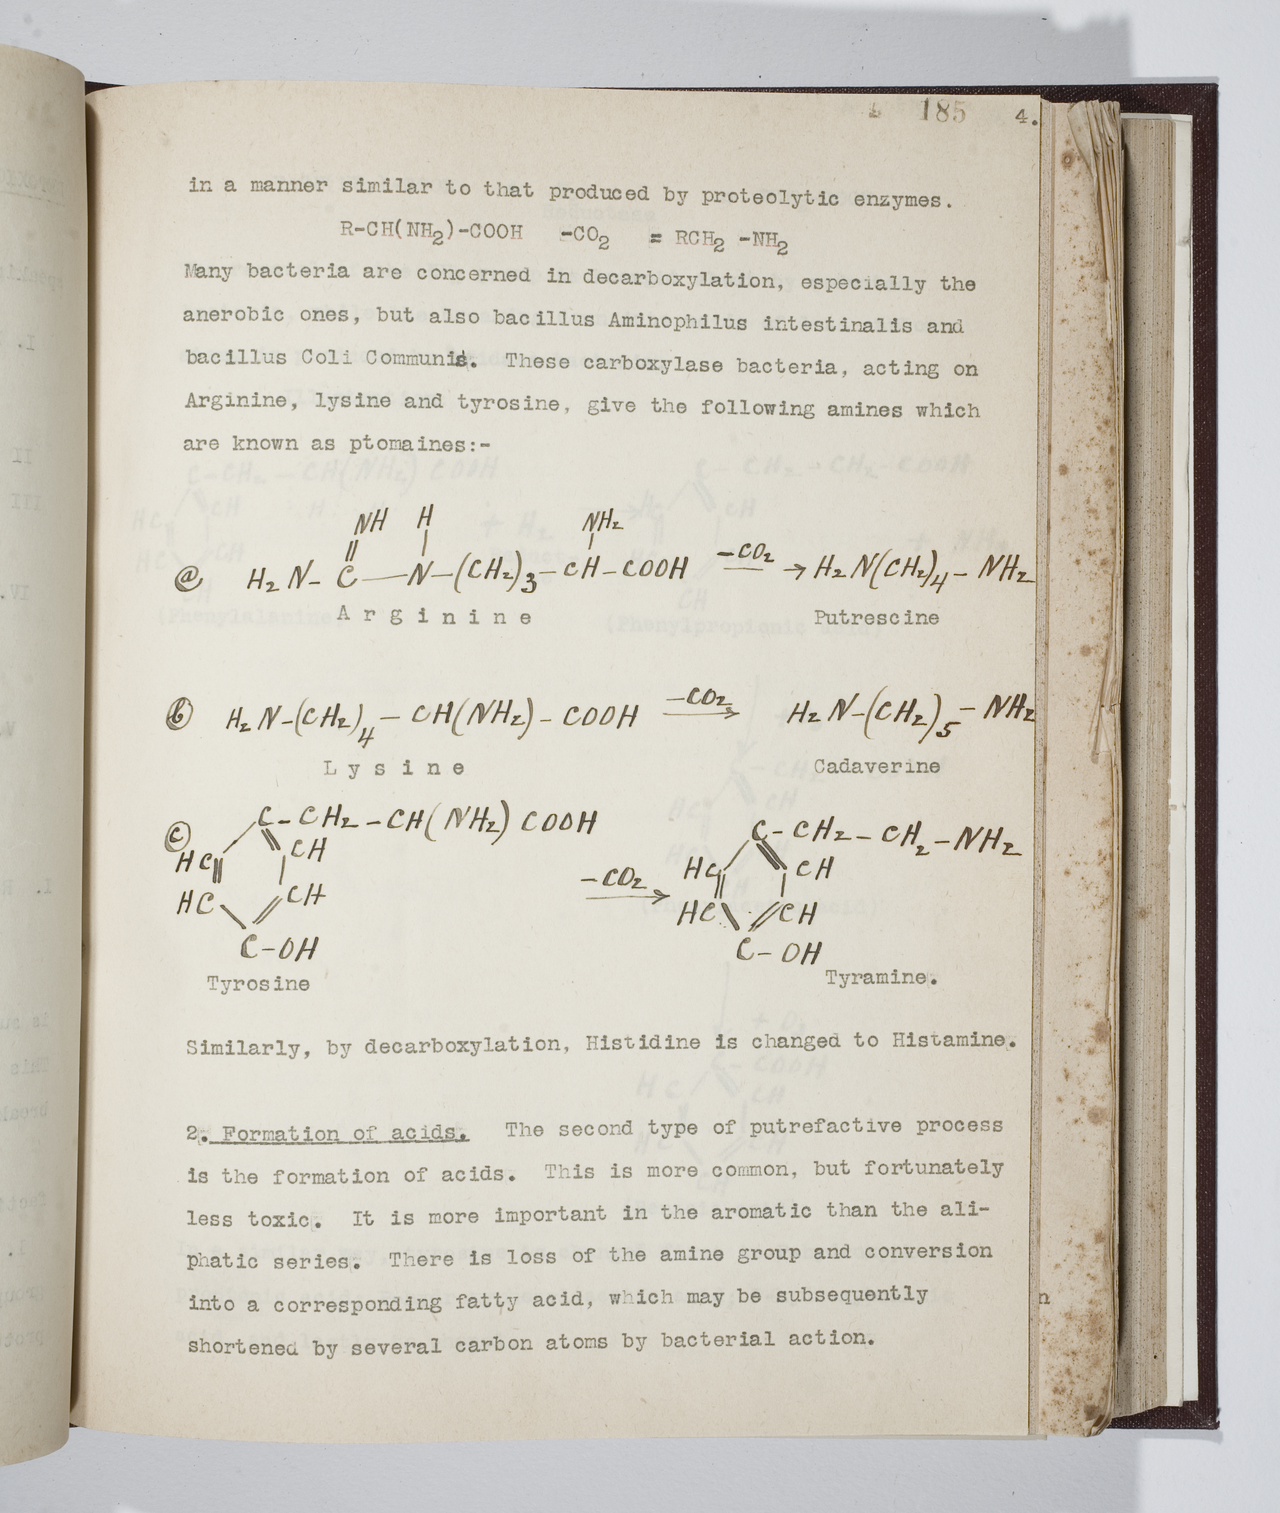 185 4.
in a manner similar to that produced by proteolytic enzymes.
R-CH(NH2)-COOH -CO2 = RCH2 -NH2
Many bacteria are concerned in decarboxylation, especially the
anerobic ones, but also bacillus Aminophilus intestinalis and
bacillus Coli Communis. These carboxylase bacteria, acting on
Arginine, lysine and tyrosine, give the following amines which
are known as ptomaines:-
NH H NH2
(a) H2N-C—N-(CH2)3-CH-COOH -CO2 → H2N(CH2)4-NH2
Arginine Putrescine
(b) H2N-(CH2)4-CH(NH2)-COOH -CO2 → H2N-(CH2)5-NH2
Lysine Cadaverine
(c) C-CH2-CH(NH2)COOH C-CH2-CH2-NH2
HC CH HC CH
-CO2 →
HC CH HC CH
C-OH C-OH
Tyrosine Tyramine.
Similarly, by decarboxylation, Histidine is changed to Histamine.
2. Formation of acids. The second type of putrefactive process
is the formation of acids. This is more common, but fortunately
less toxic. It is more important in the aromatic than the ali-
phatic series. There is loss of the amine group and conversion
into a corresponding fatty acid, which may be subsequently
shortened by several carbon atoms by bacterial action.